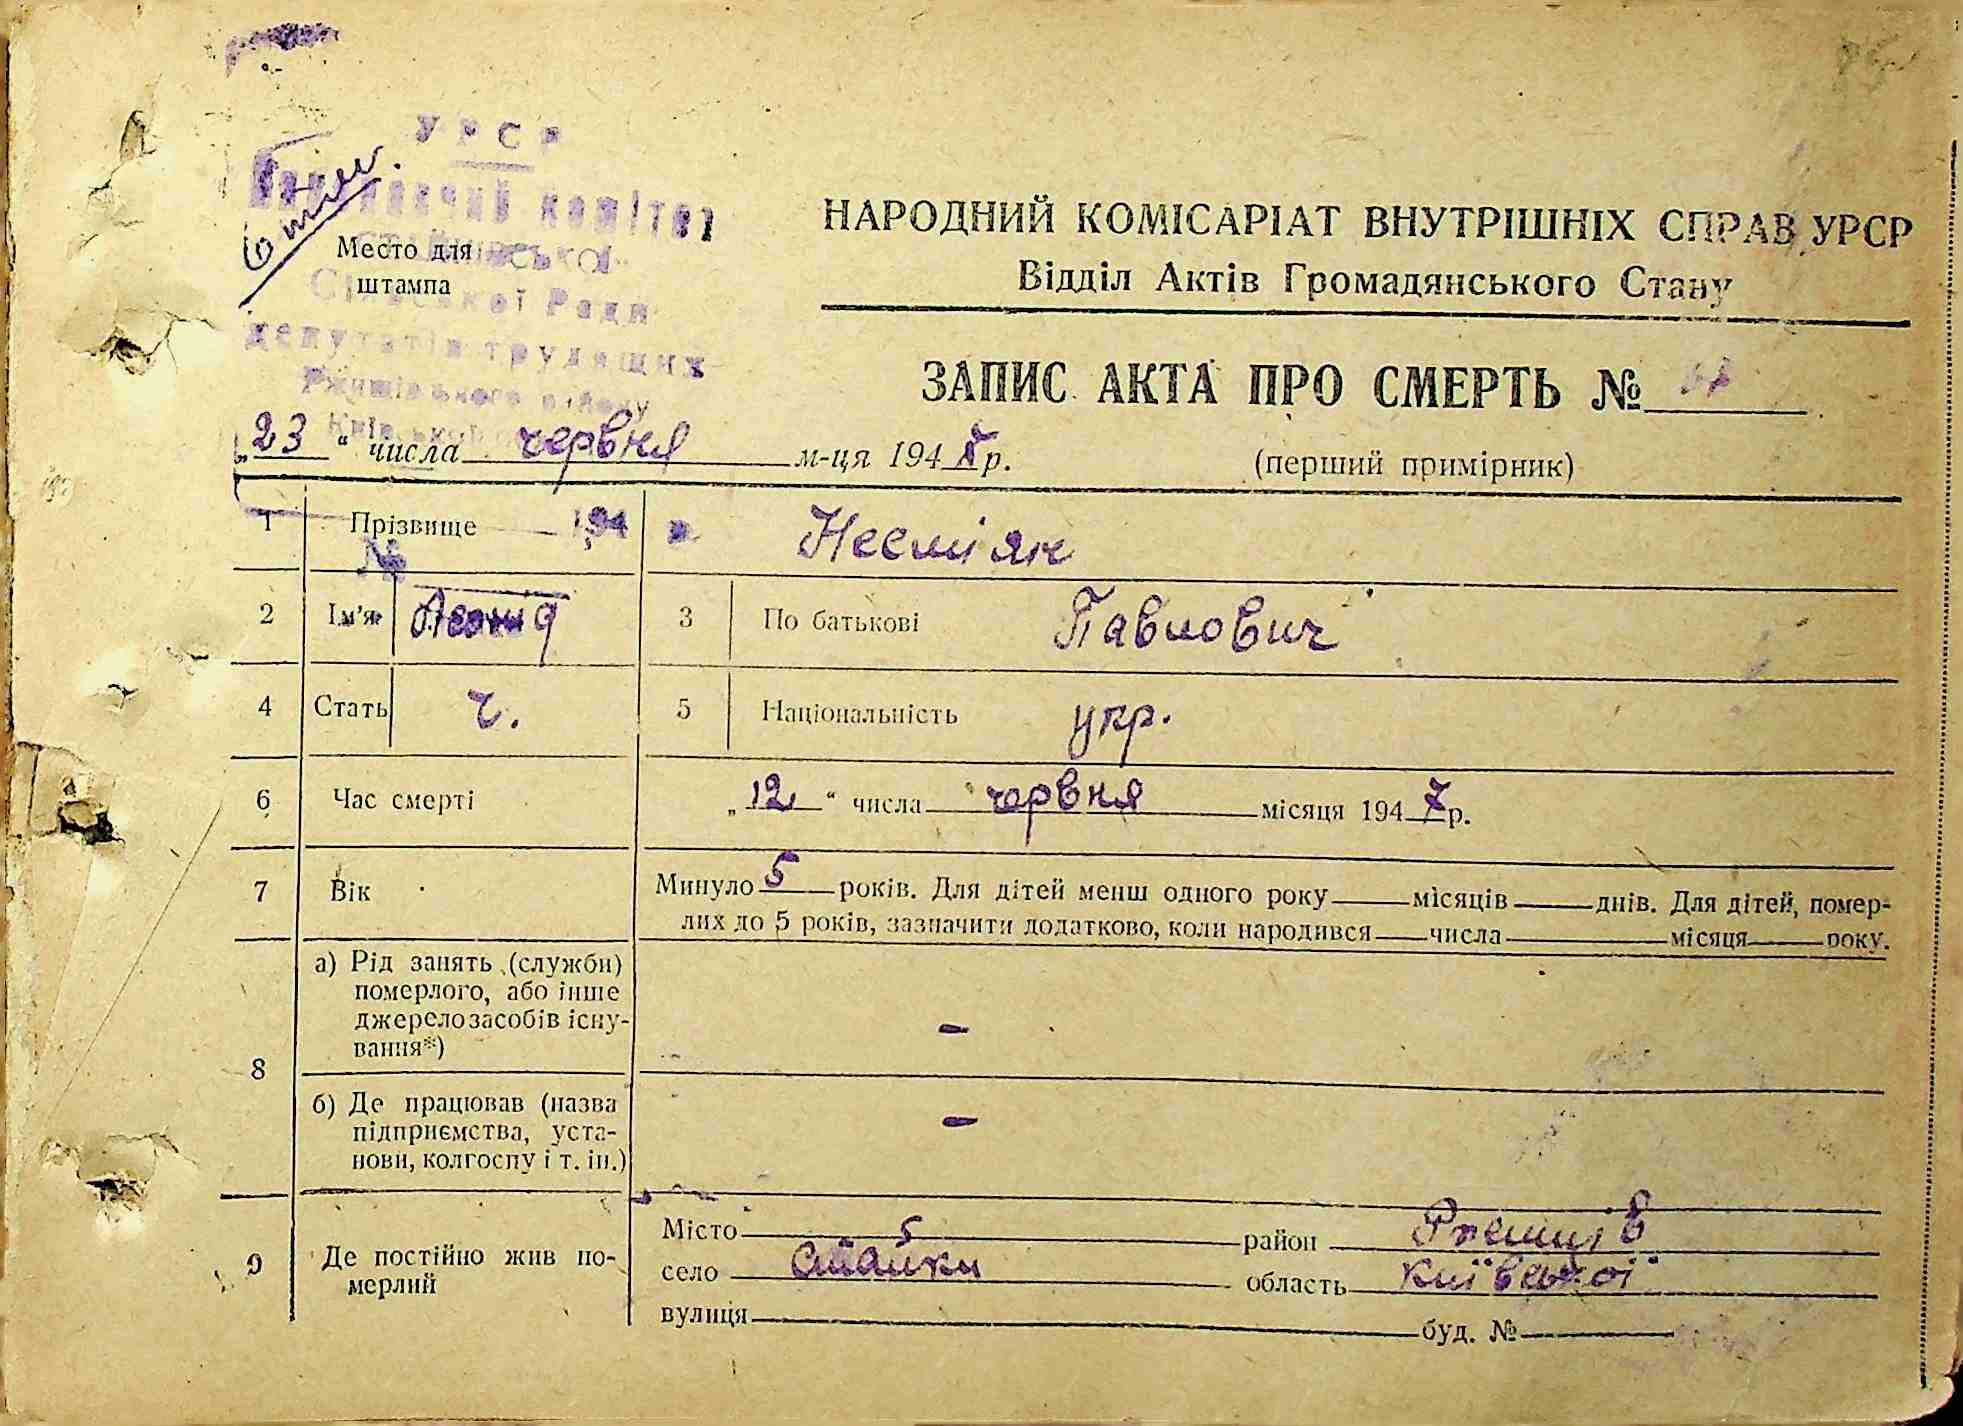 УРСР
Виконавчий комітет
Стайківської
Сільської Ради
депутатів трудящих
Ржищівського району
Місто для
штампа
НАРОДНИЙ КОМІСАРІАТ ВНУТРІШНІХ СПРАВ УРСР
Відділ Актів Громадянського Стану
ЗАПИС АКТА ПРО СМЕРТЬ №
„23“ числа червня м-ця 1947р.
(перший примірник)
1 Прізвище Несміян
194
№
2 Ім'я Леонід 3 По батькові Павлович
4 Стать ч. 5 Національність укр.
6 Час смерті „12“ числа червня місяця 1947р.
7 Вік Минуло 5 років. Для дітей менш одного року місяців днів. Для дітей, помер-
лих до 5 років, зазначити додатково, коли народився числа місяця року.
8 а) Рід занять (служби)
померлого, або інше
джерело засобів існу-
вання*) –
б) Де працював (назва
підприємства, уста-
нови, колгоспу і т. ін.) –
9 Де постійно жив по-
мерлий
Місто район Ржищів
село Стайки область Київської
вулиця буд. №